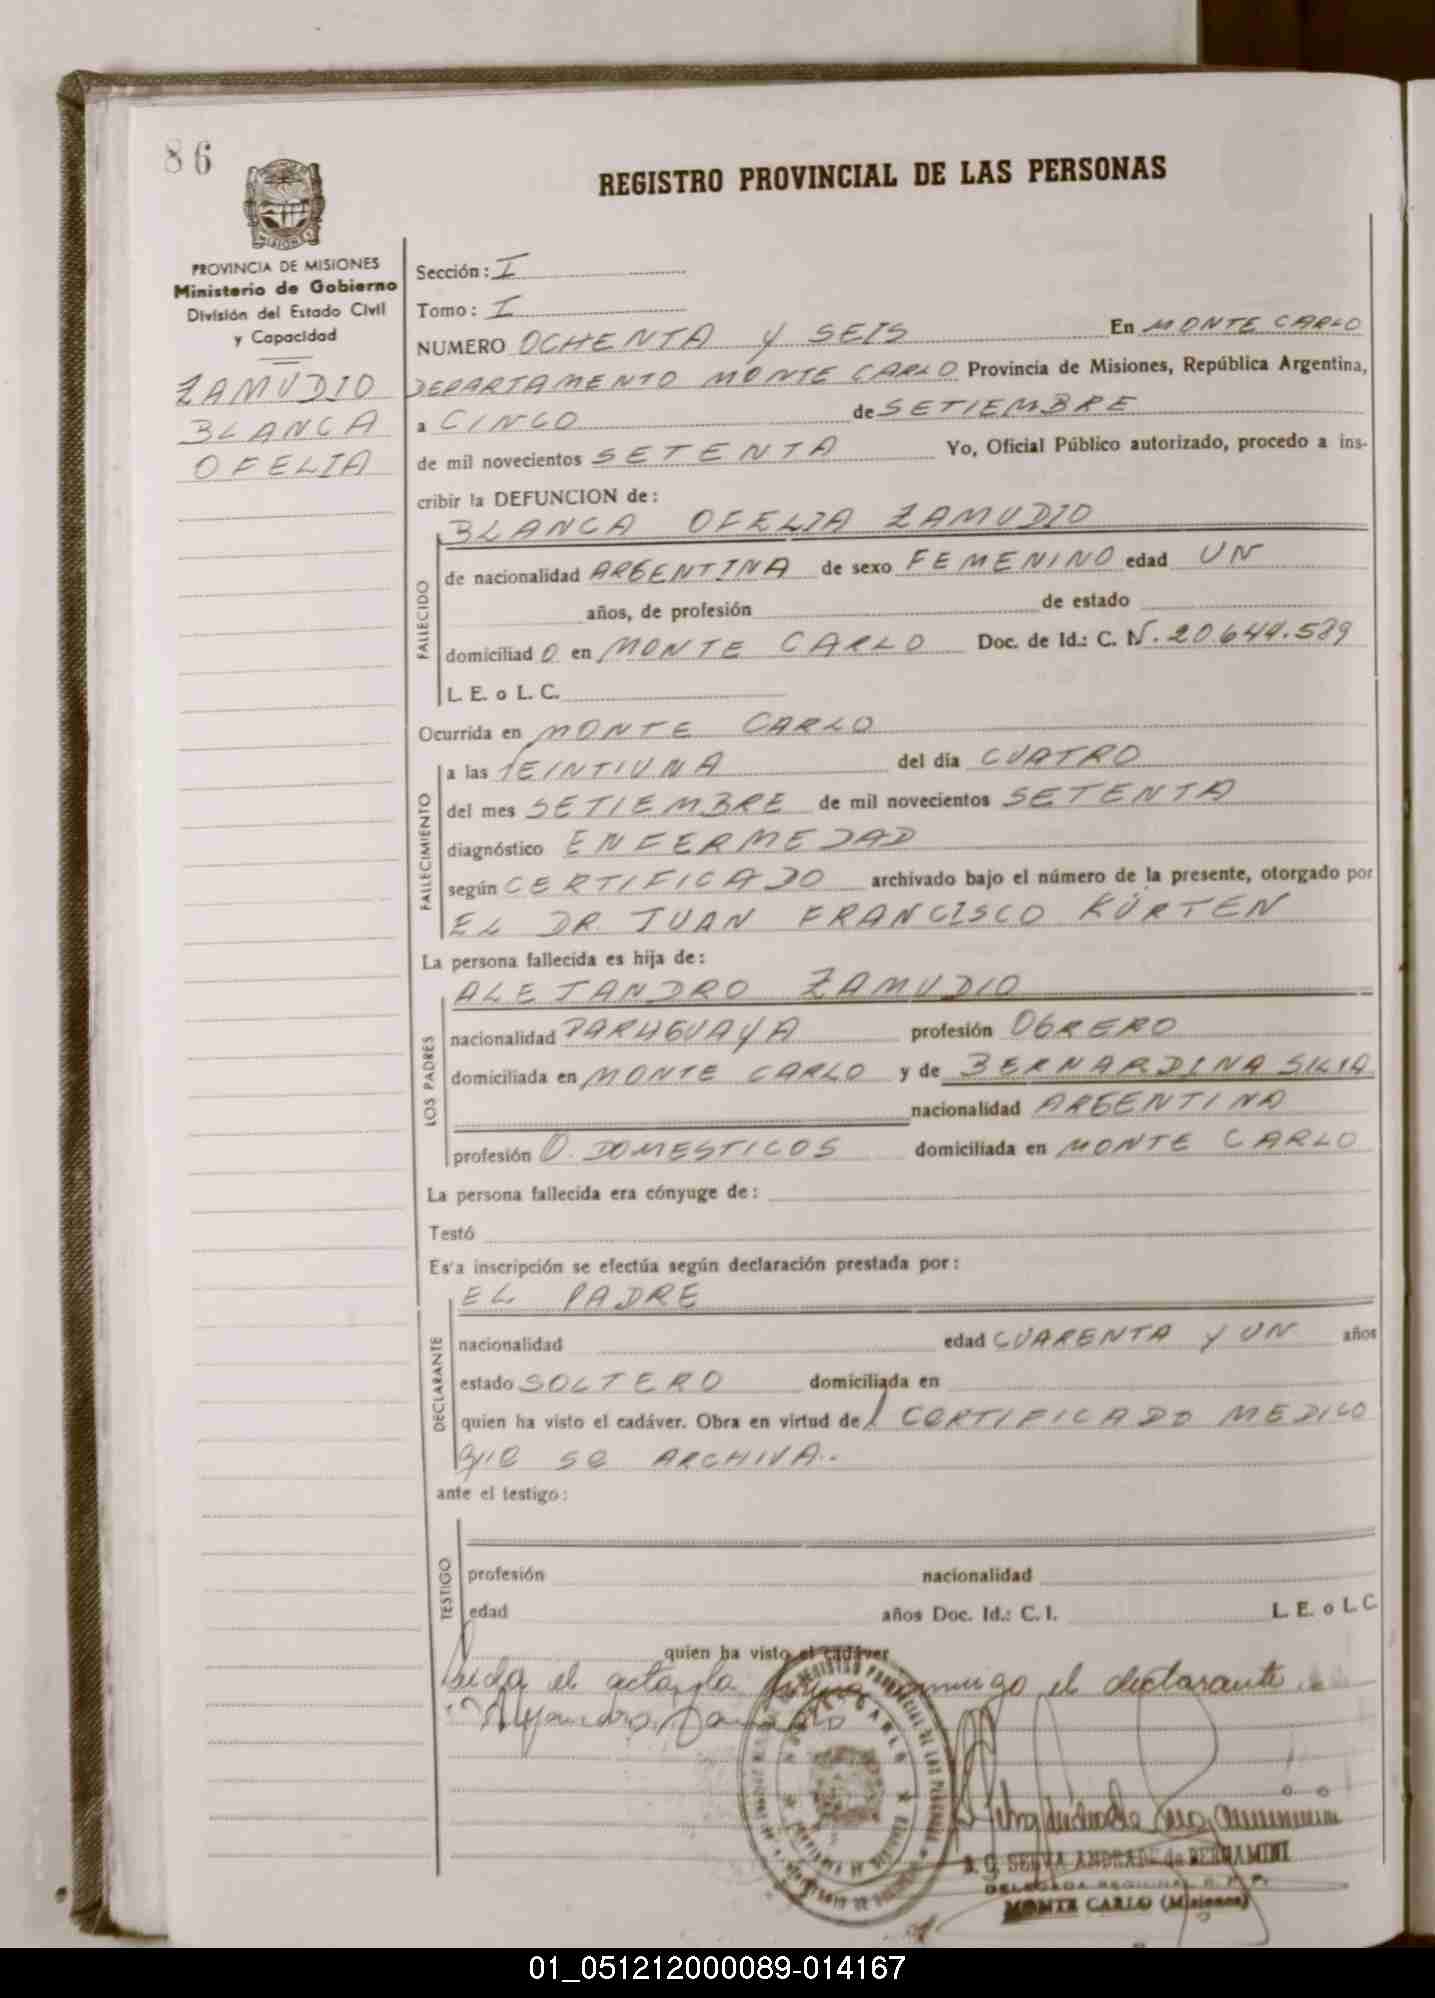 86
REGISTRO PROVINCIAL DE LAS PERSONAS
PROVINCIA DE MISIONES
Ministerio de Gobierno
División del Estado Civil
y Capacidad
ZAMUDIO
BLANCA
OFELIA
Sección: I
Tomo: I
NUMERO OCHENTA Y SEIS En MONTE CARLO
DEPARTAMENTO MONTE CARLO Provincia de Misiones, República Argentina,
a CINCO de SETIEMBRE
de mil novecientos SETENTA Yo, Oficial Público autorizado, procedo a ins-
cribir la DEFUNCION de:
BLANCA OFELIA ZAMUDIO
FALLECIDO
de nacionalidad ARGENTINA de sexo FEMENINO edad UN
años, de profesión de estado
domiciliad O en MONTE CARLO Doc. de Id.: C. N. 20.644.589
L. E. o L. C.
Ocurrida en MONTE CARLO
FALLECIMIENTO
a las VEINTIUNA del día CUATRO
del mes SETIEMBRE de mil novecientos SETENTA
diagnóstico ENFERMEDAD
según CERTIFICADO archivado bajo el número de la presente, otorgado por
EL DR. JUAN FRANCISCO KÜRTEN
La persona fallecida es hija de:
ALEJANDRO ZAMUDIO
LOS PADRES
nacionalidad PARAGUAYA profesión OBRERO
domiciliada en MONTE CARLO y de BERNARDINA SILVA
nacionalidad ARGENTINA
profesión Q. DOMESTICOS domiciliada en MONTE CARLO
La persona fallecida era cónyuge de:
Testó
Es'a inscripción se efectúa según declaración prestada por:
EL PADRE
DECLARANTE
nacionalidad edad CUARENTA Y UN años
estado SOLTERO domiciliada en
quien ha visto el cadáver. Obra en virtud del CERTIFICADO MEDICO
QUE SE ARCHIVA.
ante el testigo:
TESTIGO
profesión nacionalidad
edad años Doc. Id.: C. I. L. E. o L C
quien ha visto el cadáver
Leida el acta, la firma conmigo el declarante
Alejandro Zamudio
REGISTRO PROVINCIAL DE LAS PERSONAS
MONTE CARLO
SELVA ANDRADE de BERGAMINI
DELEGADA REGIONAL R. P. P.
MONTE CARLO (Misiones)
01_051212000089-014167